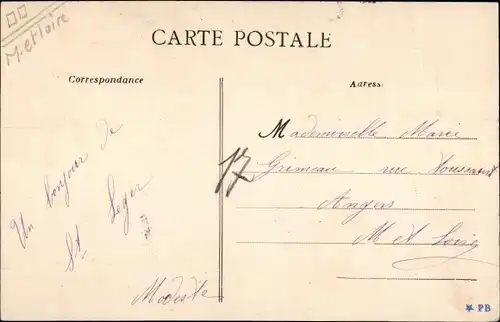 M. et loire
CARTE POSTALE
Correspondance
Adresse
Un bonjour de
St Leger
Modeste
17
Mademoiselle Marie
Grimeau rue Toussaint
Angers
M et Loire
PB